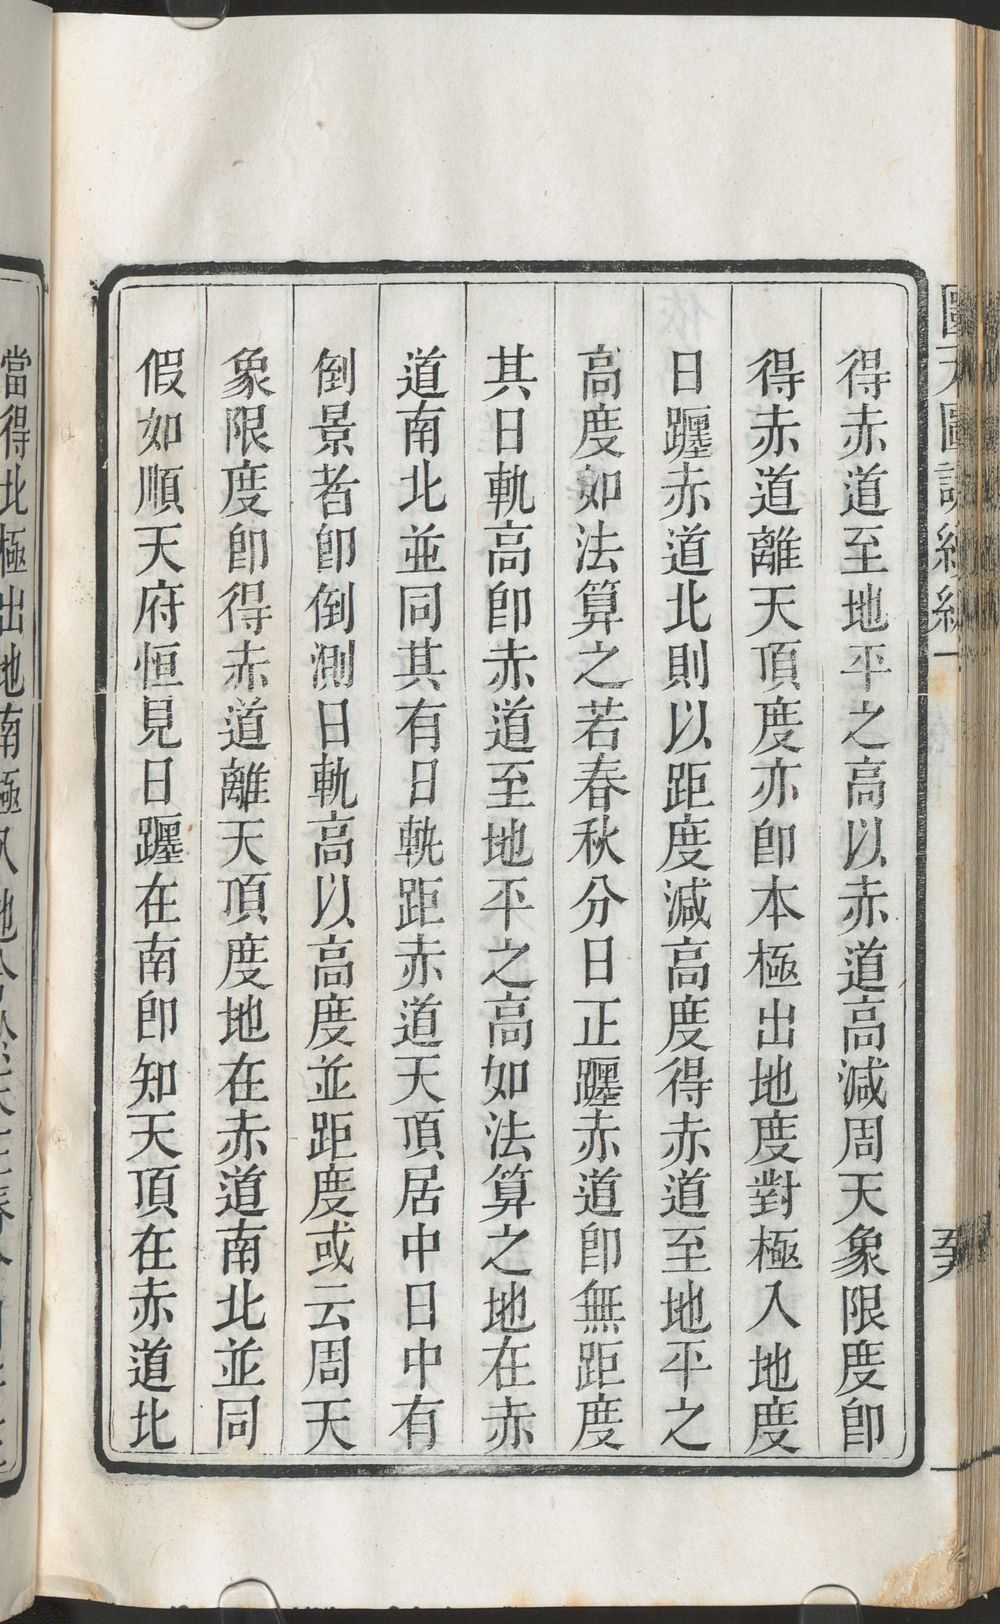 得赤道至地平之高以赤道高減周天象限度卽
得赤道離天頂度亦卽本極出地度對極入地度
日躔赤道北則以距度減高度得赤道至地平之
高度如法算之若春秋分日正躔赤道卽無距度
其日軌高卽赤道至地平之高如法算之地在赤
道南北並同其有日軌距赤道天頂居中日中有
倒景者卽倒測日軌高以高度並距度或云周天
象限度卽得赤道離天頂度地在赤道南北並同
假如順天府恒見日躔在南卽知天頂在赤道北
當得北極出地南極入地